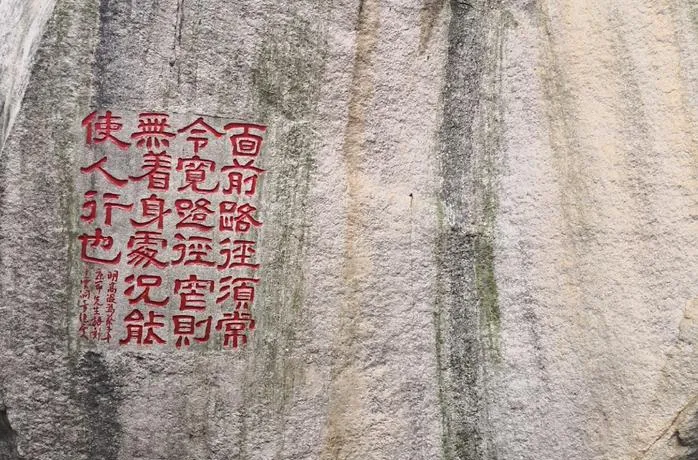 面前路徑須常
令寬路徑窄則
無着身處況能
使人行也